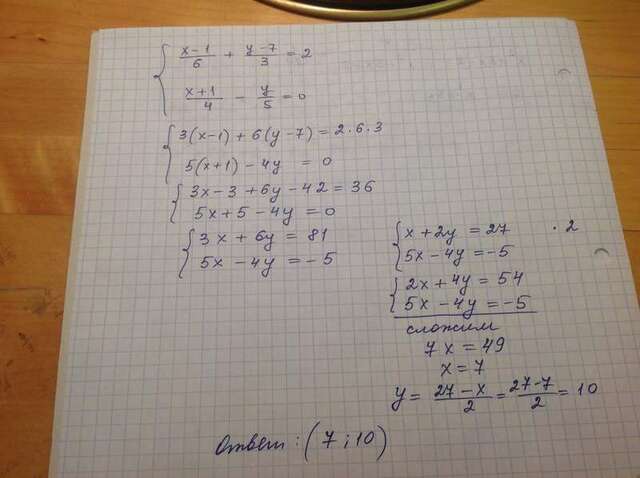 x-1/6 + y-7/3 = 2
x+1/4 - y/5 = 0
3(x-1) + 6(y-7) = 2·6·3
5(x+1) - 4y = 0
3x - 3 + 6y - 42 = 36
5x + 5 - 4y = 0
3x + 6y = 81
5x - 4y = -5
x + 2y = 27 · 2
5x - 4y = -5
2x + 4y = 54
5x - 4y = -5
сложим
7x = 49
x = 7
y = 27-x/2 = 27-7/2 = 10
Ответ: (7; 10)